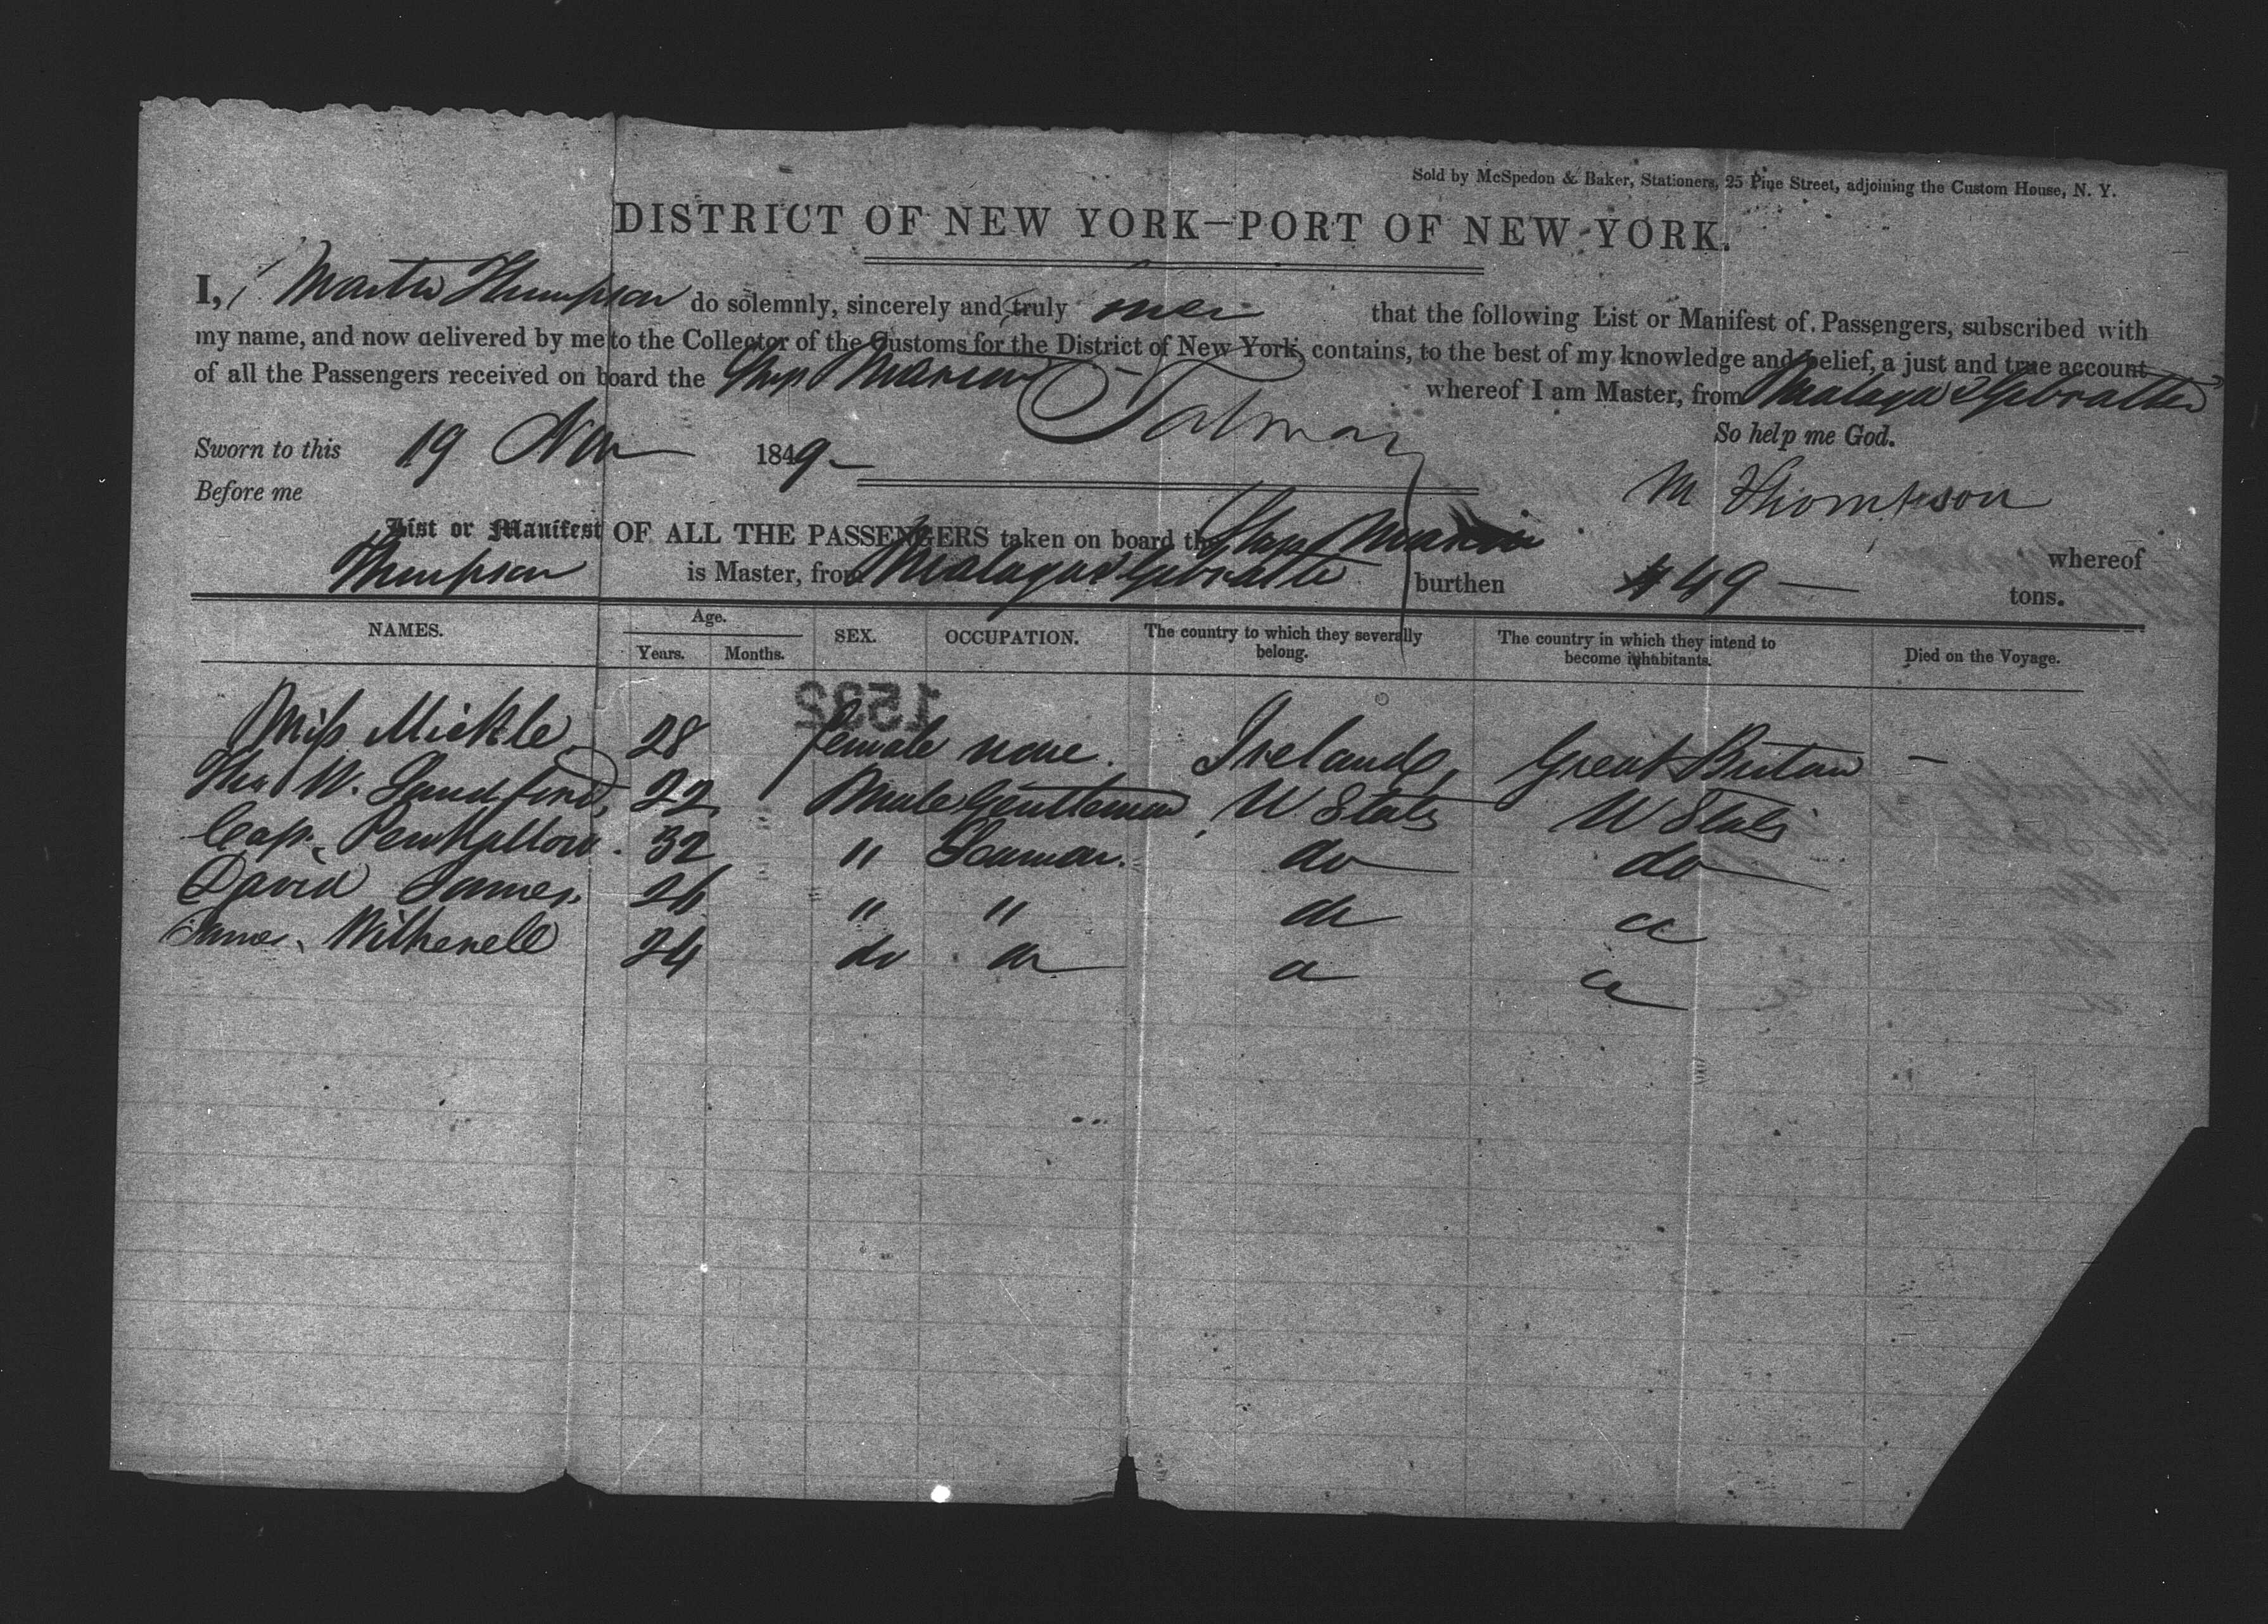 Sold by McSpedon & Baker, Stationers, 25 Pine Street, adjoining the Custom House, N. Y.
DISTRICT OF NEW YORK—PORT OF NEW YORK.
I, Martin Thompson do solemnly, sincerely and truly swear that the following List or Manifest of Passengers, subscribed with
my name, and now delivered by me to the Collector of the Customs for the District of New York, contains, to the best of my knowledge and belief, a just and true account
of all the Passengers received on board the Ship Marion whereof I am Master, from Malaga & Gibralter
So help me God.
Sworn to this 19 Nov 1849
Before me
M Thompson
List or Manifest OF ALL THE PASSENGERS taken on board the Ship Marion whereof
Thompson is Master, from Malaga & Gibralter burthen 449 tons.
NAMES. Age. Years. Months. SEX. OCCUPATION. The country to which they severally belong. The country in which they intend to become inhabitants. Died on the Voyage.
1532
Miss Mickle 28 female none. Ireland, Great Britain —
Thos W. Sandford, 22 Male Gentleman U States U States
Cap. Penhallow. 32 " Seaman. do do
David James. 26 " " do do
James Witherell 24 do do do do